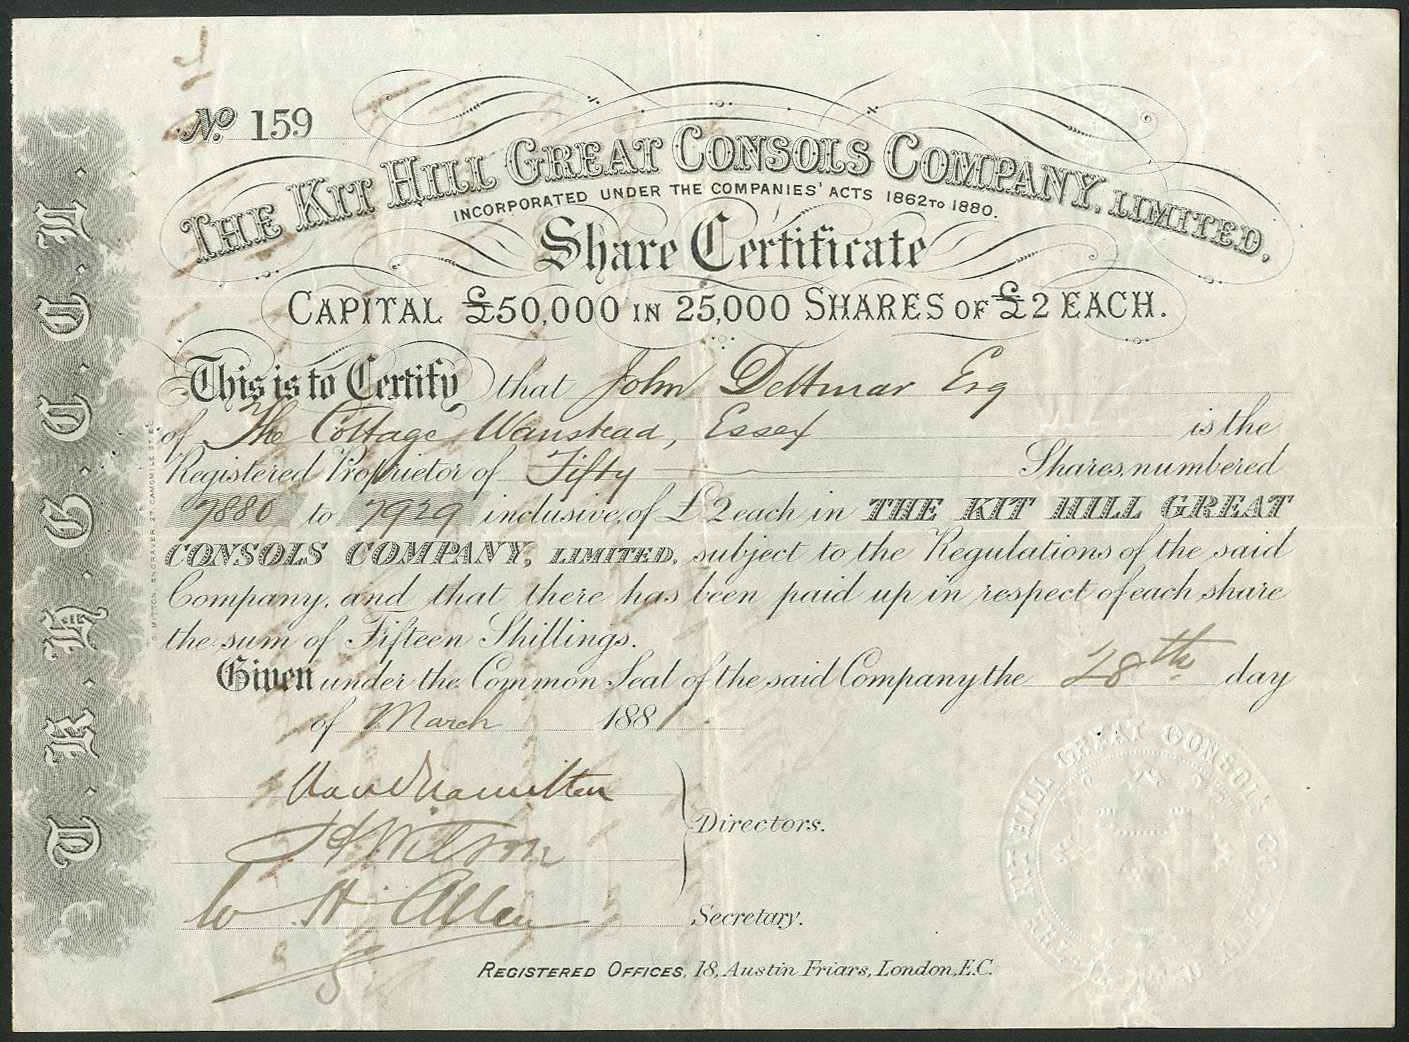 No 159
THE KIT HILL GREAT CONSOLS COMPANY, LIMITED.
INCORPORATED UNDER THE COMPANIES' ACTS 1862 TO 1880.
Share Certificate
CAPITAL £50,000 IN 25,000 SHARES OF £2 EACH.
This is to Certify that John Dettmar Esq
of The Cottage Wanstead, Essex is the
Registered Proprietor of Fifty Shares, numbered
7880 to 7929 inclusive, of £2 each in THE KIT HILL GREAT
CONSOLS COMPANY, LIMITED, subject to the Regulations of the said
Company, and that there has been paid up in respect of each share
the sum of Fifteen Shillings.
Given under the Common Seal of the said Company the 28th day
of March 1881.
David Hamilton
H Wilson
Directors.
W. H. Allen
Secretary.
REGISTERED OFFICES, 18, Austin Friars, London, E.C.
T.K.H.G.C.C.L.